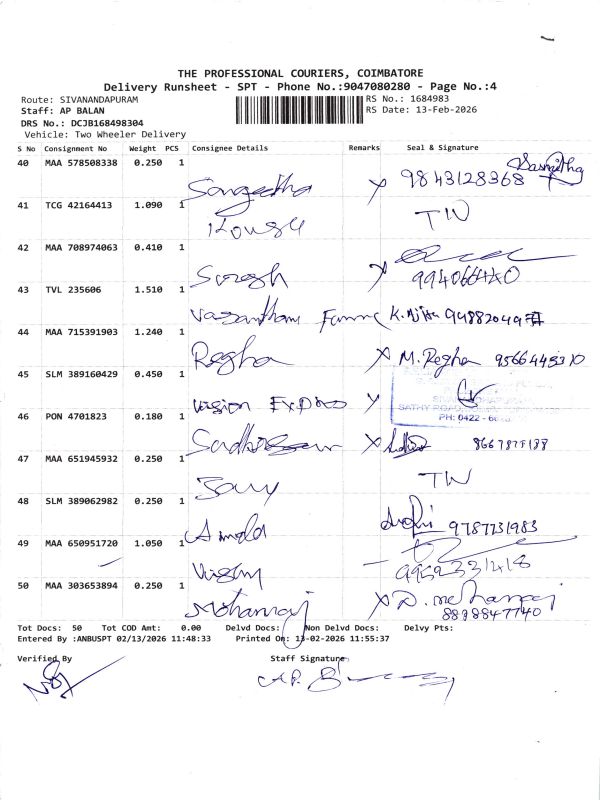 THE PROFESSIONAL COURIERS, COIMBATORE
Delivery Runsheet - SPT - Phone No.:9047080280 - Page No.:4
Route: SIVANANDAPURAM RS No.: 1684983
Staff: AP BALAN RS Date: 13-Feb-2026
DRS No.: DCJB168498304
Vehicle: Two Wheeler Delivery
S No Consignment No Weight PCS Consignee Details Remarks Seal & Signature
40 MAA 578508338 0.250 1 Sangeetha X 9843128368
41 TCG 42164413 1.090 1 TIN
42 MAA 708974063 0.410 1 Suresh X
43 TVL 235606 1.510 1 Vasantham
44 MAA 715391903 1.240 1 Regha X M. Regha 9566445310
45 SLM 389160429 0.450 1 Vision Express
SATHY ROAD
PH: 0422 -
46 PON 4701823 0.180 1 X
47 MAA 651945932 0.250 1 TIN
48 SLM 389062982 0.250 1 Arnold 9787731983
49 MAA 650951720 1.050 1
50 MAA 303653894 0.250 1 Mohanraj X
Tot Docs: 50 Tot COD Amt: 0.00 Delvd Docs: Non Delvd Docs: Delvy Pts:
Entered By :ANBUSPT 02/13/2026 11:48:33 Printed On: 13-02-2026 11:55:37
Verified By Staff Signature